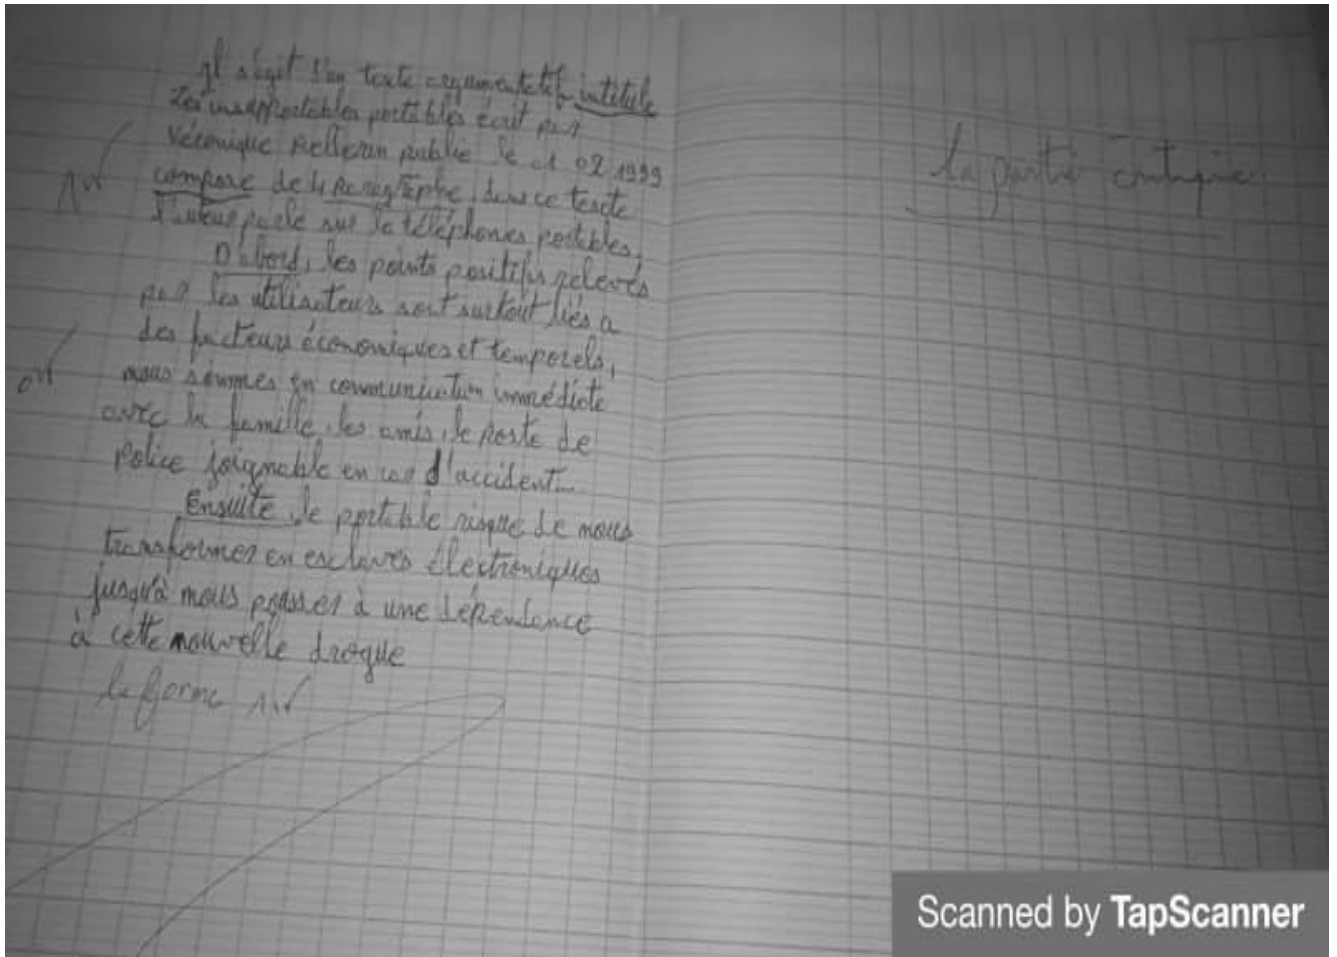 Il s'agit d'un texte argumentatif intitule
Les insupportables portables écrit par
Véronique Pellerin publie le 01 02 1999
compose de 4 Paragraphe, dans ce texte
l'auteur parle sur le téléphones portables,
D'abord, les points positifs relevés
par les utilisateurs sont surtout liés a
des facteurs économiques et temporels,
nous sommes en communication immédiate
avec la famille, les amis, le Poste de
Police joignable en cas d'accident...
Ensuite le portable risque de nous
transformer en esclaves électroniques
jusqu'à nous pousser à une dépendance
à cette nouvelle drogue
la forme
la partie critique
Scanned by TapScanner